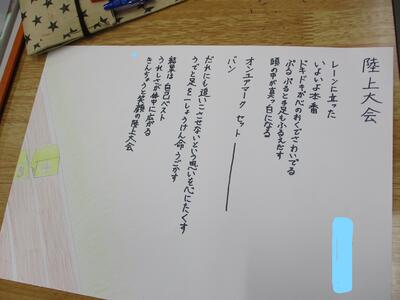 陸上大会
レーンに立った
いよいよ本番
ドキドキが心のおくでさわいでる
ぶるぶると手足もふるえだす
頭の中が真っ白になる
オンユアマーク セット ―――
バン
だれにも追いこさせないという思いを心にたくす
うでと足を一しょうけん命うごかす
結果は自己ベスト
うれしさが体中に広がる
きんちょうと笑顔の陸上大会